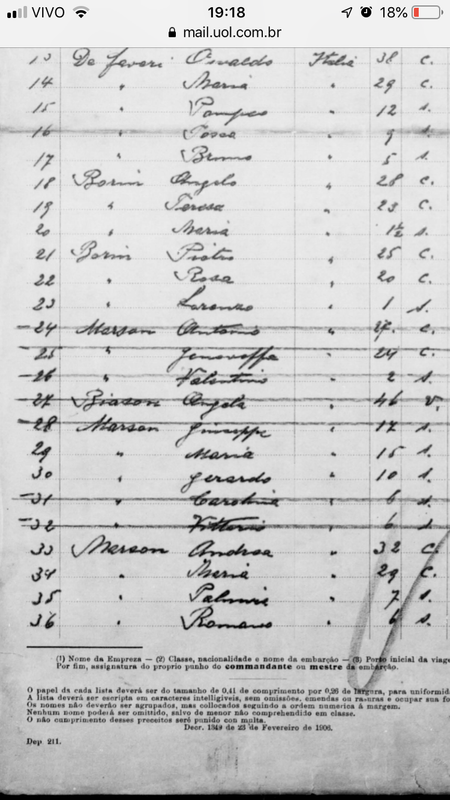 VIVO 19:18 18%
mail.uol.com.br
13 De Faveri Osvaldo Italia 38 c.
14 " Maria " 29 c.
15 " Pompeo " 12 s.
16 " 9 s.
17 " Bruno " 5 s.
18 Borin Angelo " 28 c.
19 " Teresa " 23 c.
20 " Maria " 1½ s.
21 Borin Pietro " 25 c.
22 " Rosa " 20 c.
23 " Lorenzo " 1 s.
24 Marson Antonio " 27. c.
25 " Genoveffa " 24 c.
26 " Valentino " 2 s.
27 Biason Angela " 46 v.
28 Marson Giuseppe " 17 s.
29 " Maria " 15 s.
30 " Gerardo " 10 s.
31 " Carolina " 6 s.
32 " Vittorio " 6 s.
33 Marson Andrea " 32 c.
34 " Maria " 29 c.
35 " Palmira " 7 s.
36 " Romano " 6 s.
(1) Nome da Empreza — (2) Classe, nacionalidade e nome da embarção — (3) Porto inicial da viage
Por fim, assignatura do proprio punho do commandante ou mestre da embarção.
O papel da cada lista deverá ser do tamanho de 0,41 de comprimento por 0,26 de largura, para uniformid
A lista deverá ser escripta em caracteres intelligiveis, sem omissões, emendas ou rasuras e ocupar sua fo
Os nomes não deverão ser agrupados, mas collocados seguindo a ordem numerica á margem.
Nenhum nome poderá ser omittido, salvo de menor não comprehendido em classe.
O não cumprimento desses preceitos será punido com multa.
Decr. 1349 de 23 de Fevereiro de 1906.
Dep. 211.